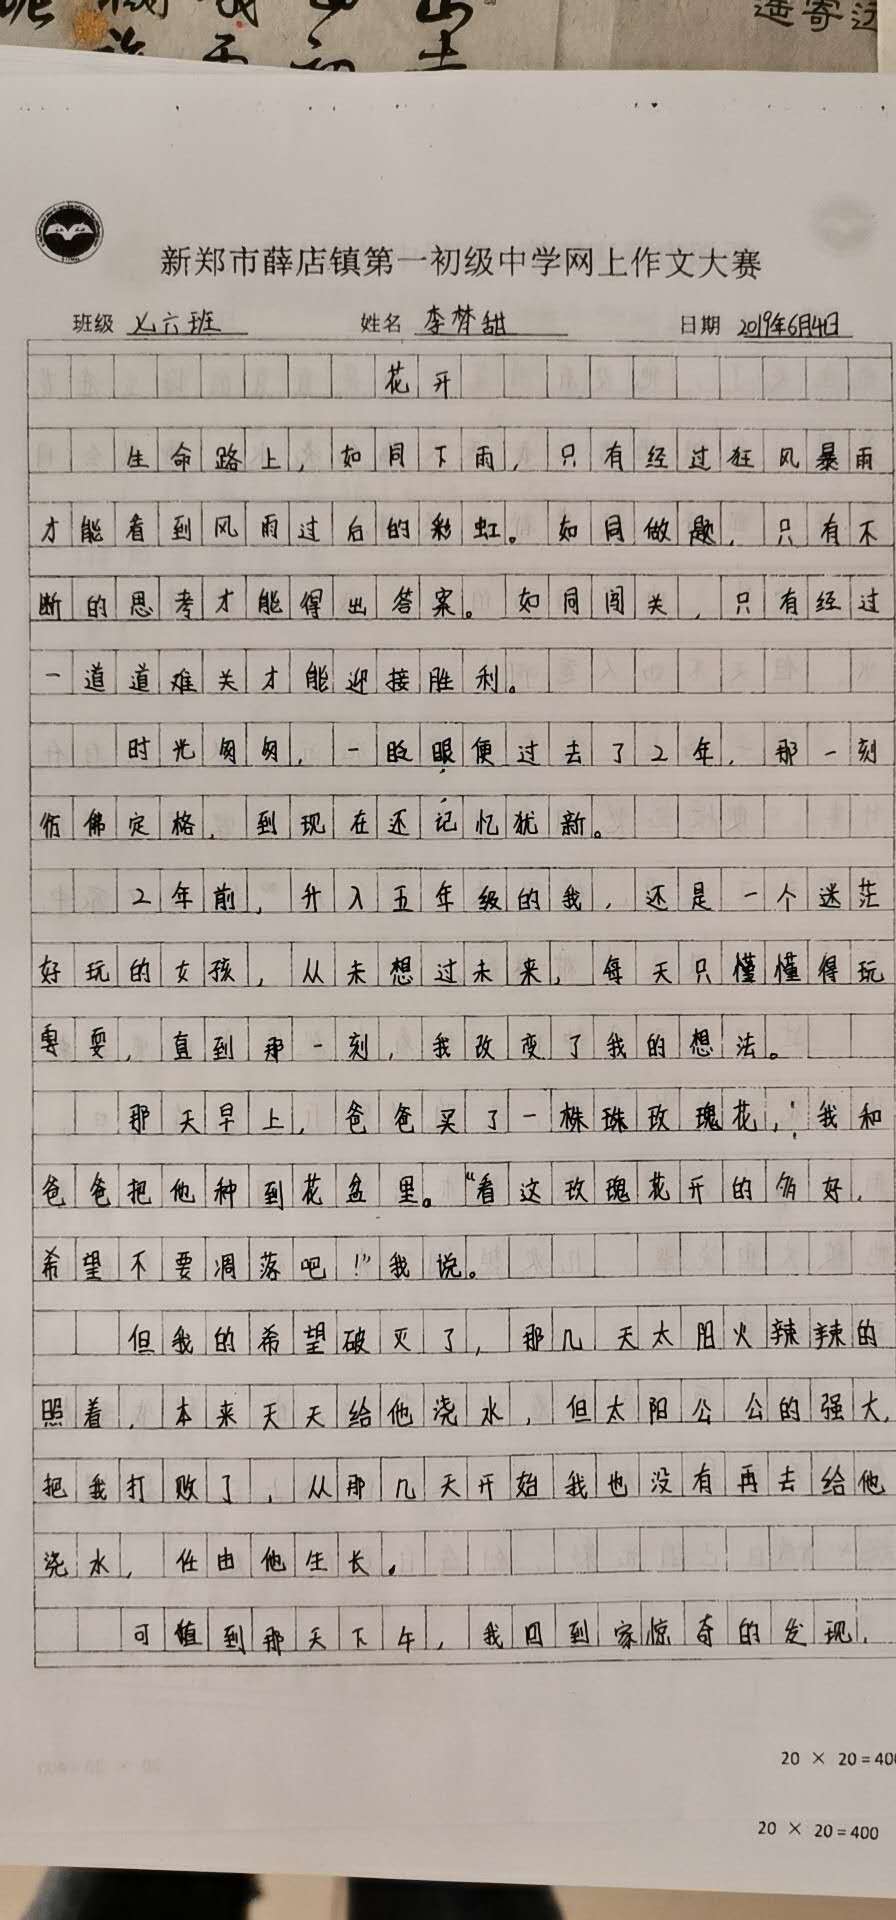 遥寄远
新郑市薛店镇第一初级中学网上作文大赛
班级 七六班 姓名 李梦甜 日期 2019年6月4日
花开
生命路上，如同下雨，只有经过狂风暴雨
才能看到风雨过后的彩虹。如同做题，只有不
断的思考才能得出答案。如同闯关，只有经过
一道道难关才能迎接胜利。
时光匆匆，一眨眼便过去了2年，那一刻
仿佛定格，到现在还记忆犹新。
2年前，升入五年级的我，还是一个迷茫
好玩的女孩，从未想过未来，每天只懂懂得玩
耍耍，直到那一刻，我改变了我的想法。
那天早上，爸爸买了一株珠玫瑰花，我和
爸爸把他种到花盆里。“看这玫瑰花开的多好，
希望不要凋落吧！”我说。
但我的希望破灭了，那几天太阳火辣辣的
照着，本来天天给他浇水，但太阳公公的强大，
把我打败了，从那几天开始我也没有再去给他
浇水，任由他生长。
可值到那天下午，我回到家惊奇的发现，
20 × 20=40
20 × 20=400